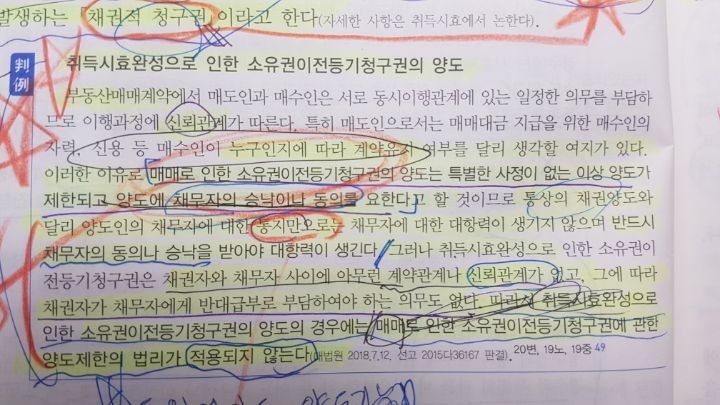 발생하는 '채권적 청구권'이라고 한다(자세한 사항은 취득시효에서 논한다).
判例
취득시효완성으로 인한 소유권이전등기청구권의 양도
부동산매매계약에서 매도인과 매수인은 서로 동시이행관계에 있는 일정한 의무를 부담하
므로 이행과정에 신뢰관계가 따른다. 특히 매도인으로서는 매매대금 지급을 위한 매수인의
자력, 신용 등 매수인이 누구인지에 따라 계약유지 여부를 달리 생각할 여지가 있다.
이러한 이유로 매매로 인한 소유권이전등기청구권의 양도는 특별한 사정이 없는 이상 양도가
제한되고 양도에 채무자의 승낙이나 동의를 요한다고 할 것이므로 통상의 채권양도와
달리 양도인의 채무자에 대한 통지만으로는 채무자에 대한 대항력이 생기지 않으며 반드시
채무자의 동의나 승낙을 받아야 대항력이 생긴다. 그러나 취득시효완성으로 인한 소유권이
전등기청구권은 채권자와 채무자 사이에 아무런 계약관계나 신뢰관계가 없고, 그에 따라
채권자가 채무자에게 반대급부로 부담하여야 하는 의무도 없다. 따라서 취득시효완성으로
인한 소유권이전등기청구권의 양도의 경우에는 매매로 인한 소유권이전등기청구권에 관한
양도제한의 법리가 적용되지 않는다(대법원 2018.7.12. 선고 2015다36167 판결). 20변, 19노, 19중 49